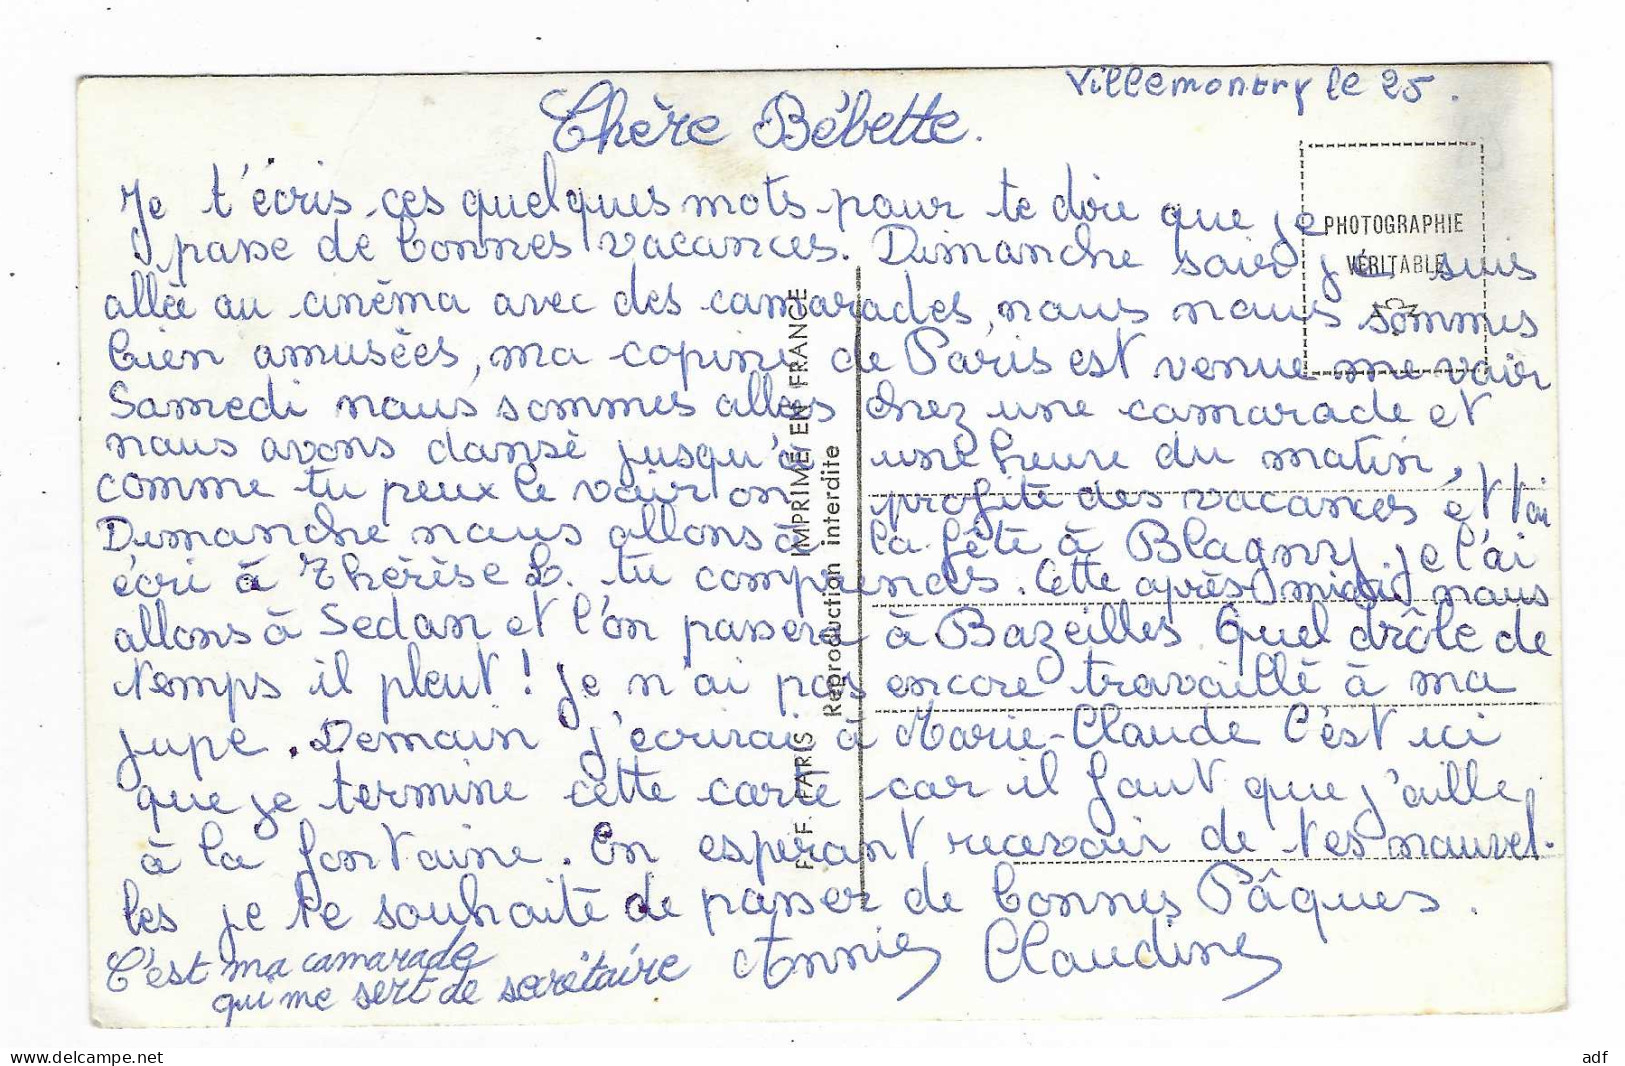 Villemontry le 25.
Chère Bébette.
Je t'écris ces quelques mots pour te dire que je
passe de bonnes vacances. Dimanche soir je suis
allée au cinéma avec des camarades, nous nous sommes
bien amusées, ma copine de Paris est venue me voir
Samedi nous sommes allées chez une camarade et
nous avons dansé jusqu'à une heure du matin,
comme tu peux le voir on profite des vacances et toi
Dimanche nous allons à la fête à Blagny, je l'ai
écri à Thérèse L. tu comprends. Cette après midi nous
allons à Sedan et l'on passera à Bazeilles. Quel drôle de
temps il pleut! Je n'ai pas encore travaillé à ma
jupe. Demain j'écrirai à Marie-Claude C'est ici
que je termine cette carte car il faut que j'aille
à la fontaine. En esperant recevoir de tes nouvel-
les je te souhaite de passer de bonnes Pâques.
Annie Claudine
C'est ma camarade
qui me sert de secrétaire
PHOTOGRAPHIE
VÉRITABLE
PARIS IMPRIMÉ EN FRANCE
Reproduction interdite
www.delcampe.net
adf